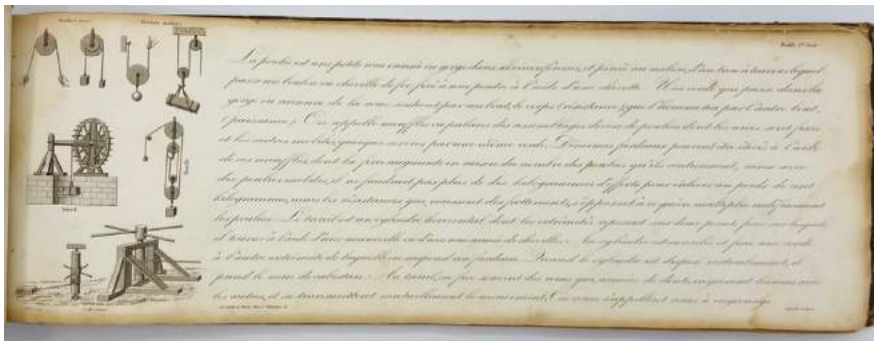 La poulie est une petite roue creusée en gorge dans sa circonférence, et percée au milieu, d'un trou à travers lequel
passe un boulon ou cheville de fer fixé à une poutre à l'aide d'une chevette. Une corde qui passe dans la
gorge ou rainure de la roue soutient par un bout, le corps (résistance) que l'homme tire par l'autre bout,
(puissance). On appelle mouffles ou palans des assemblages divers de poulies dont les unes sont fixes
et les autres mobiles, quoique servies par une même corde. D'énormes fardeaux peuvent être élevés à l'aide
de ces mouffles, dont la force augmente en raison du nombre des poulies qu'elles renferment, ainsi avec
des poulies mobiles, il ne faudrait pas plus de dix kilogrammes d'efforts pour enlever un poids de cent
kilogrammes, mais les résistances qui naissent des frottements, s'opposent à ce qu'on multiplie indéfiniment
les poulies. Le treuil est un cylindre horizontal dont les extrémités reposent sur deux points fixes sur lesquels
il tourne à l'aide d'une manivelle ou d'une roue armée de chevilles. Au cylindre est enroulée et fixée une corde
à l'autre extrémité de laquelle on suspend un fardeau. Quand le cylindre est disposé verticalement, il
prend le nom de cabestan. Au treuil, on fixe souvent des roues qui, armées de dents, engrènent les unes avec
les autres, et se transmettent mutuellement le mouvement. Ces roues s'appellent roues à engrenage